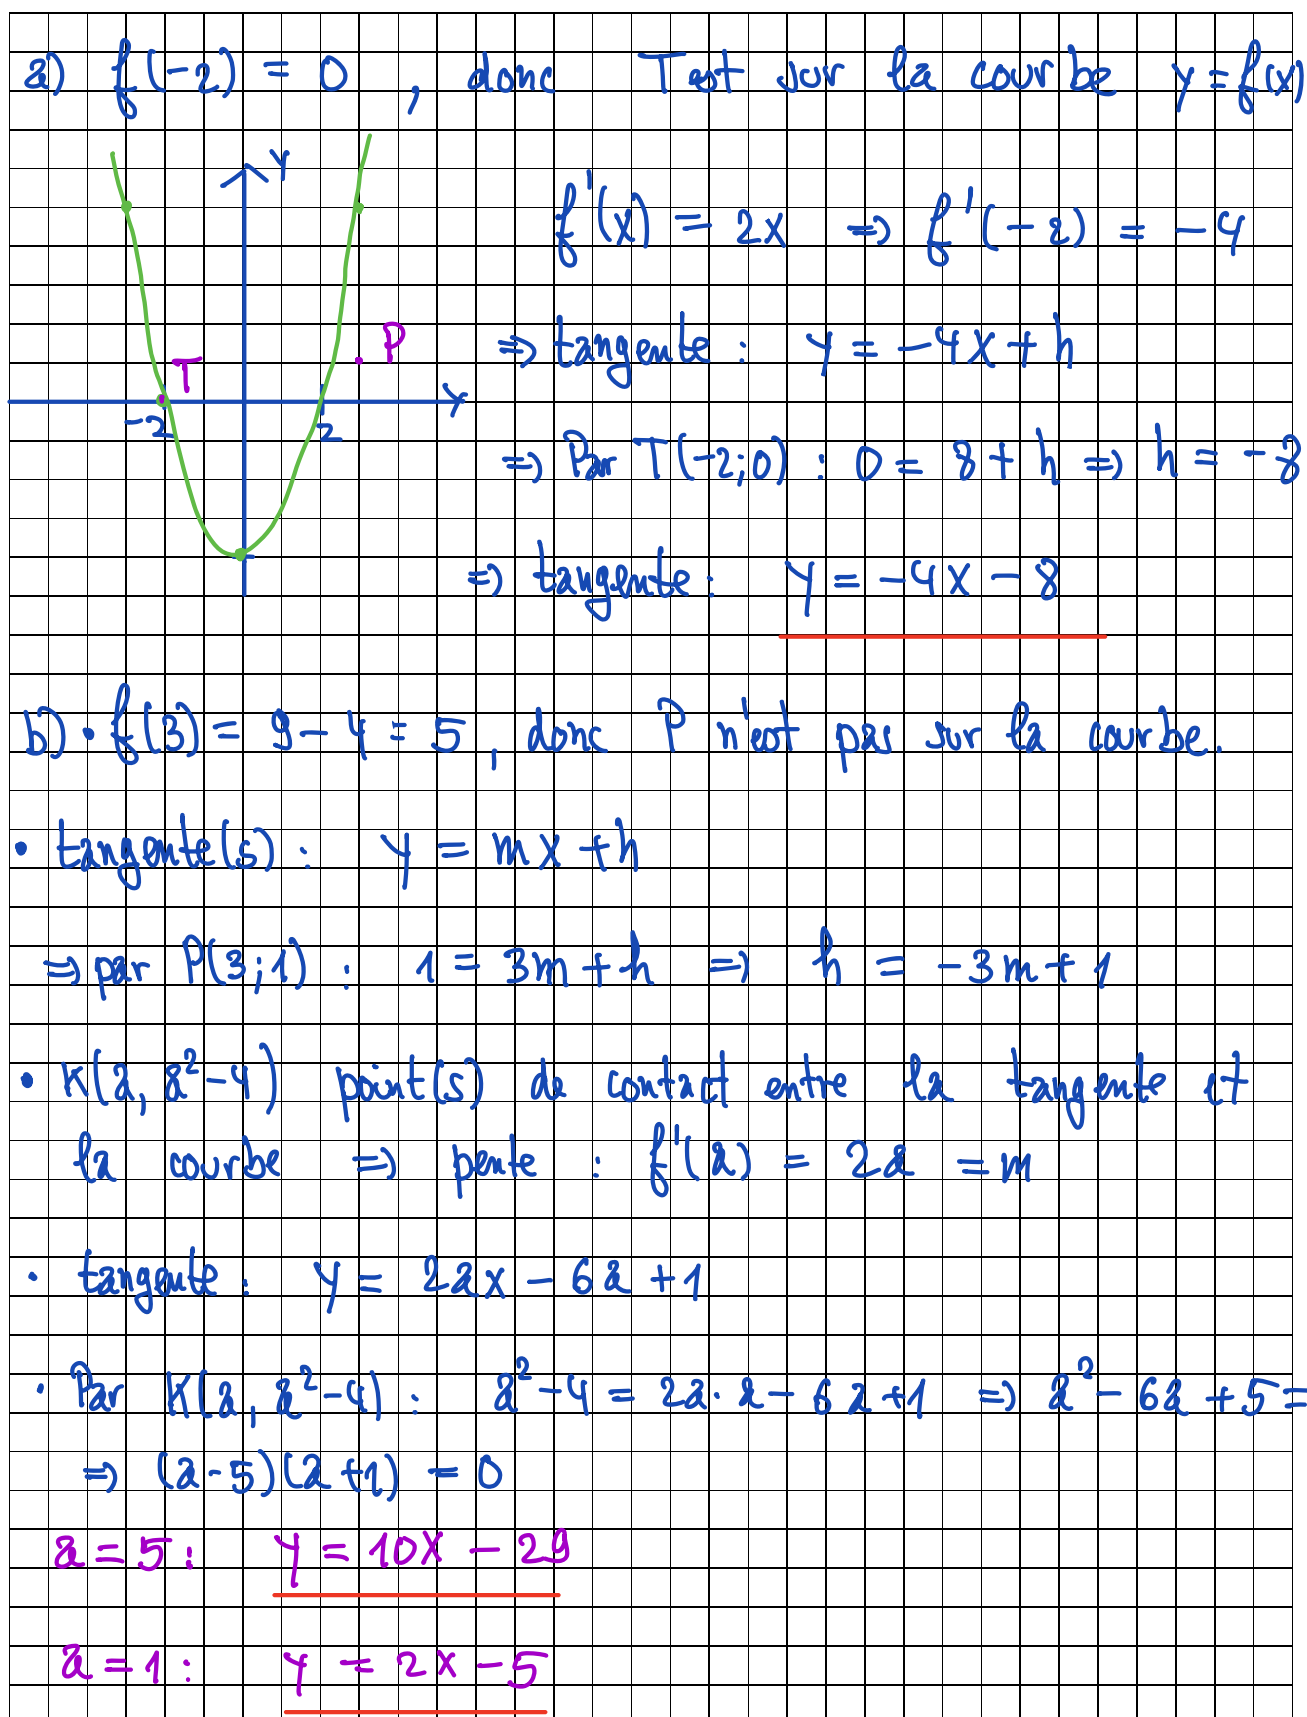 a) f(-2) = 0 , donc T est sur la courbe y = f(x)
y
f'(x) = 2x ⇒ f'(-2) = -4
P
⇒ tangente : y = -4x + h
T
-2 2
⇒ Par T(-2;0) : 0 = 8 + h ⇒ h = -8
⇒ tangente : y = -4x - 8
b) • f(3) = 9 - 4 = 5 , donc P n'est pas sur la courbe.
• tangente(s) : y = mx + h
⇒ par P(3;1) : 1 = 3m + h ⇒ h = -3m + 1
• K(a, a²-4) point(s) de contact entre la tangente et
la courbe ⇒ pente : f'(a) = 2a = m
• tangente : y = 2ax - 6a + 1
• Par K(a, a²-4) : a²-4 = 2a·a - 6a + 1 ⇒ a² - 6a + 5 =
⇒ (a-5)(a+1) = 0
a = 5 : y = 10x - 29
a = 1 : y = 2x - 5